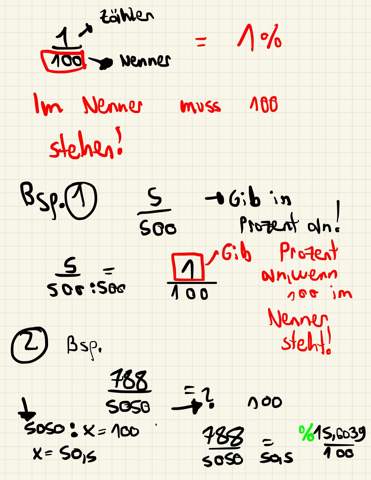 1 → Zähler
100 → Nenner = 1%
Im Nenner muss 100
stehen!
Bsp. 1
5
500
→ Gib in
Prozent an!
5
500 : 500
=
1
100
Gib Prozent
an, wenn
100 im
Nenner
steht!
2 Bsp.
788
5050
= ?
→ 100
5050 : x = 100
x = 50,5
788
5050
=
50,5
% 15,6039
100